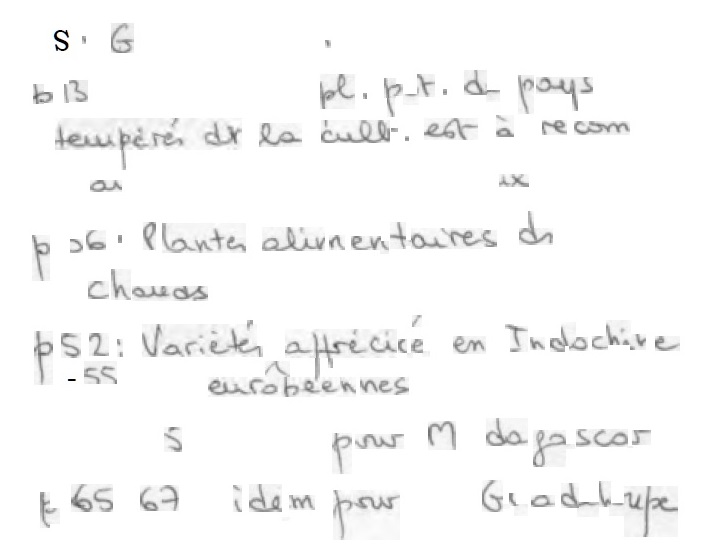 S. G
p 13 pl. p.t. d pays
tempérés dt la cult. est à recom
au ix
p 26. Plantes alimentaires ds
chauds
p 52: Variétés appréciée en Indochine
- 55 européennes
5 pour M dagascar
p 65 67 idem pour